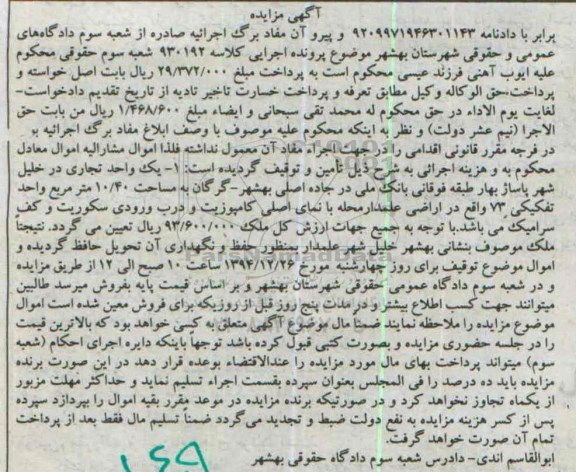 آگهی مزایده
برابر با دادنامه ۹۲۰۹۹۷۱۹۴۶۳۰۱۱۴۳ و پیرو آن مفاد برگ اجرائیه صادره از شعبه سوم دادگاههای
عمومی و حقوقی شهرستان بهشهر موضوع پرونده اجرایی کلاسه ۹۳۰۱۹۲ شعبه سوم حقوقی محکوم
علیه ایوب آهنی فرزند عیسی محکوم است به پرداخت مبلغ ۲۹/۳۷۲/۰۰۰ ریال بابت اصل خواسته و
پرداخت حق الوکاله وکیل مطابق تعرفه و پرداخت خسارت تاخیر تادیه از تاریخ تقدیم دادخواست-
لغایت یوم الاداء در حق محکوم له محمد تقی سبحانی و ایضاء مبلغ ۱/۴۶۸/۶۰۰ ریال من بابت حق
الاجرا (نیم عشر دولت) و نظر به اینکه محکوم علیه موصوف با وصف ابلاغ مفاد برگ اجرائیه به
در فرجه مقرر قانونی اقدامی را در جهت اجراء مفاد آن معمول نداشته فلذا اموال مشارالیه اموال معادل
محکوم به و هزینه اجرائی به شرح ذیل تأمین و توقیف گردیده است: ۱- یک واحد تجاری در خلیل
شهر پاساژ بهار طبقه فوقانی بانک ملی در جاده اصلی بهشهر-گرگان به مساحت ۱۰/۴۰ متر مربع واحد
تفکیکی ۷۳ واقع در اراضی علمدارمحله با نمای اصلی کامپوزیت و درب ورودی سکوریت و کف
سرامیک می باشد.با توجه به جمیع جهات ارزش کل ملک ۹۳/۶۰۰/۰۰۰ ریال تعیین می گردد. نتیجتاً
ملک موصوف بنشانی بهشهر خلیل شهر علمدار بمنظور حفظ و نگهداری آن تحویل حافظ گردیده و
اموال موضوع توقیف برای روز چهارشنبه مورخ ۱۳۹۴/۱۲/۲۶ ساعت ۱۰ صبح الی ۱۲ از طریق مزایده
و در شعبه سوم دادگاه عمومی حقوقی شهرستان بهشهر و بر اساس قیمت پایه بفروش میرسد طالبین
میتوانند جهت کسب اطلاع بیشتر و در مدت پنج روز قبل از روزیکه برای فروش معین شده است اموال
موضوع مزایده را ملاحظه نمایند ضمناً مال موضوع آگهی متعلق به کسی خواهد بود که بالاترین قیمت
را در جلسه حضوری مزایده و بصورت کتبی قبول کرده باشد توجهاً باینکه دایره اجرای احکام (شعبه
سوم) میتواند پرداخت بهای مال مورد مزایده را عندالاقتضاء بوعده قرار دهد در این صورت برنده
مزایده باید ده درصد را فی المجلس بعنوان سپرده بقسمت اجراء تسلیم نماید و حداکثر مهلت مزبور
از یکماه تجاوز نخواهد کرد و در صورتیکه برنده مزایده در موعد مقرر بقیه اموال را نپردازد سپرده
پس از کسر هزینه مزایده به نفع دولت ضبط و تجدید می گردد ضمناً تسلیم مال فقط بعد از پرداخت
تمام آن صورت خواهد گرفت.
ابوالقاسم اندی- دادرس شعبه سوم دادگاه حقوقی بهشهر